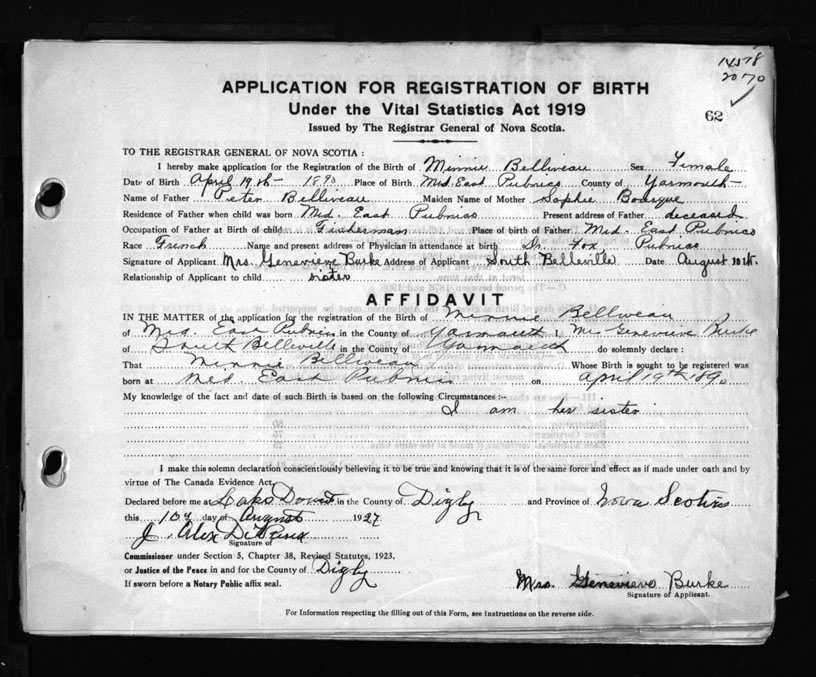 14578
2070
62
APPLICATION FOR REGISTRATION OF BIRTH
Under the Vital Statistics Act 1919
Issued by The Registrar General of Nova Scotia.
TO THE REGISTRAR GENERAL OF NOVA SCOTIA :
I hereby make application for the Registration of the Birth of Minnie Belliveau Sex Female
Date of Birth April 19th 1890 Place of Birth Mid. East Pubnico County of Yarmouth
Name of Father Peter Belliveau Maiden Name of Mother Sophie Bourque
Residence of Father when child was born Mid. East Pubnico Present address of Father deceased
Occupation of Father at Birth of child Fisherman Place of birth of Father Mid. East Pubnico
Race French Name and present address of Physician in attendance at birth Dr. Fox, Pubnico
Signature of Applicant Mrs. Genevieve Burke Address of Applicant South Belleville Date August 10th
Relationship of Applicant to child sister
AFFIDAVIT
IN THE MATTER of the application for the registration of the Birth of Minnie Belliveau
of Mid. East Pubnico in the County of Yarmouth I, Mrs Genevieve Burke
of South Belleville in the County of Yarmouth do solemnly declare :
That Minnie Belliveau Whose Birth is sought to be registered was
born at Mid. East Pubnico on April 19th 1890
My knowledge of the fact and date of such Birth is based on the following Circumstances :-
I am her sister
I make this solemn declaration conscientiously believing it to be true and knowing that it is of the same force and effect as if made under oath and by
virtue of The Canada Evidence Act.
Declared before me at in the County of Digby and Province of Nova Scotia
this 10th day of August 1927
J. Alex
Signature of
Commissioner under Section 5, Chapter 38, Revised Statutes, 1923,
or Justice of the Peace in and for the County of Digby
If sworn before a Notary Public affix seal.
Mrs. Genevieve Burke
Signature of Applicant.
For Information respecting the filling out of this Form, see Instructions on the reverse side.